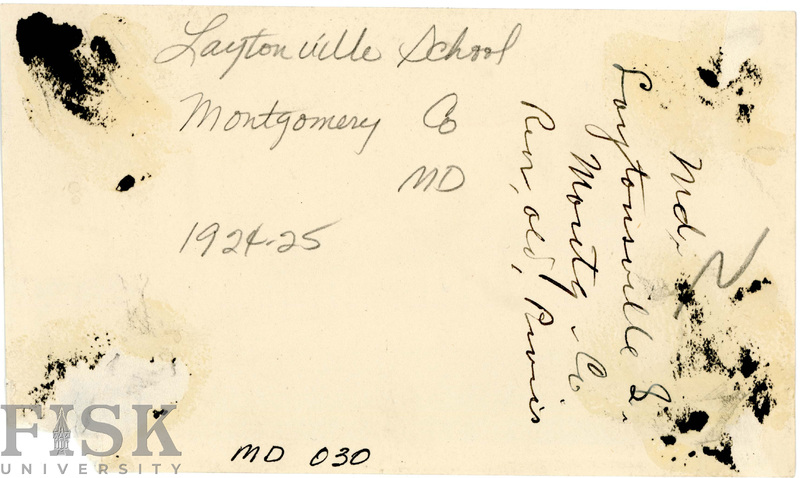 Laytonville School
Montgomery Co
MD
1924-25
Md.
Laytonsville S.
Montg. Co
Rear, old, Privies
MD 030
FISK
UNIVERSITY